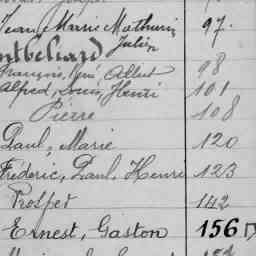 Jean Marie Mathurin 97.
Julien
ntbéliard
François, René Albert 98
Alfred, Louis, Henri 101
Pierre 108
Paul, Marie 120
Frédéric, Paul, Henri 123
Prosper 142
Ernest, Gaston 156